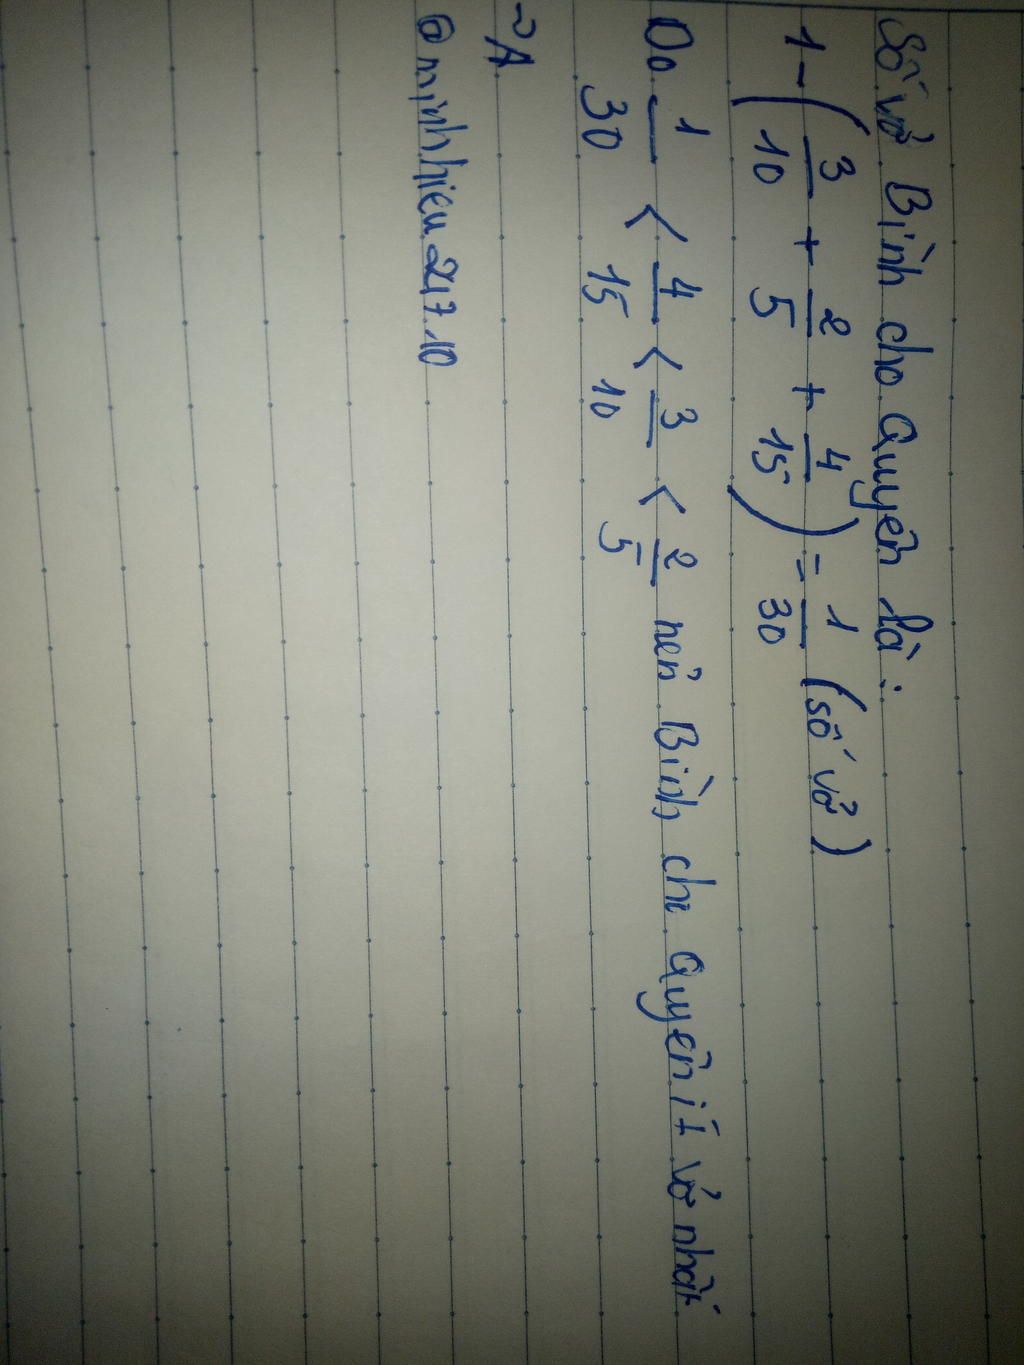 Số vở Bình cho Quyên là:
1 - ( 3/10 + 2/5 + 4/15 ) = 1/30 (số vở)
Do 1/30 < 4/15 < 3/10 < 2/5 nên Bình cho Quyên ít vở nhất
~A
@minhhieu.217.10